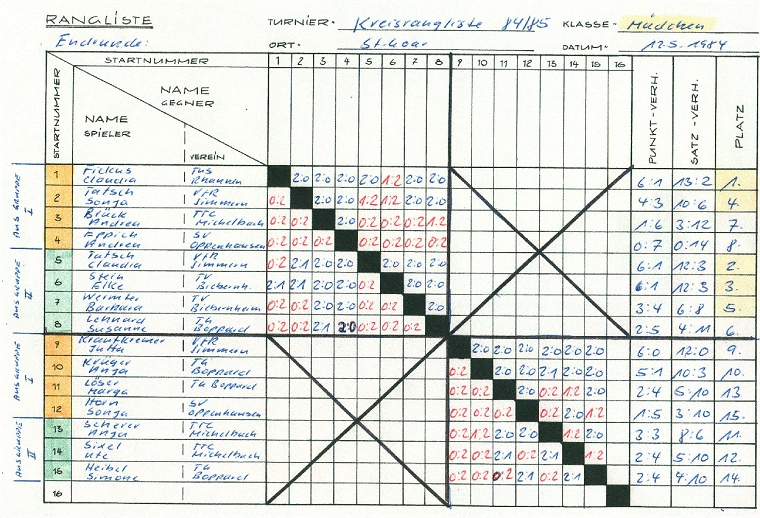 RANGLISTE TURNIER· Kreisrangliste 84/85 KLASSE· Mädchen
Endrunde: ORT· St. Goar DATUM· 12.5.1984
STARTNUMMER 1 2 3 4 5 6 7 8 9 10 11 12 13 14 15 16
STARTNUMMER NAME SPIELER VEREIN NAME GEGNER PUNKT-VERH. SATZ-VERH. PLATZ
AUS GRUPPE I
1 Fickus Claudia TuS Rhaunen 2:0 2:0 2:0 2:0 1:2 2:0 2:0 6:1 13:2 1.
2 Tatsch Sonja VfR Simmern 0:2 2:0 2:0 1:2 1:2 2:0 2:0 4:3 10:6 4.
3 Brück Andrea TTC Michelbach 0:2 0:2 2:0 0:2 0:2 0:2 1:2 1:6 3:12 7.
4 Eppich Andrea SV Oppenhausen 0:2 0:2 0:2 0:2 0:2 0:2 0:2 0:7 0:14 8.
AUS GRUPPE II
5 Tatsch Claudia VfR Simmern 0:2 2:1 2:0 2:0 2:0 2:0 2:0 6:1 12:3 2.
6 Stein Elke TV Biebernh. 2:1 2:1 2:0 2:0 0:2 2:0 2:0 6:1 12:3 3.
7 Weirather Barbara TV Biebernheim 0:2 0:2 2:0 2:0 0:2 0:2 2:0 3:4 6:8 5.
8 Lennard Susanne TG Boppard 0:2 0:2 2:1 2:0 0:2 0:2 0:2 2:5 4:11 6.
AUS GRUPPE I
9 Krautkremer Jutta VfR Simmern 2:0 2:0 2:0 2:0 2:0 2:0 6:0 12:0 9.
10 Krüger Anja TG Boppard 0:2 2:0 2:0 2:1 2:0 2:0 5:1 10:3 10.
11 Löser Marga TG Boppard 0:2 0:2 2:0 0:2 1:2 2:0 2:4 5:10 13
12 Horn Sonja SV Oppenhausen 0:2 0:2 0:2 0:2 2:0 1:2 1:5 3:10 15.
AUS GRUPPE II
13 Scherer Anja TTC Michelbach 0:2 1:2 2:0 2:0 1:2 2:0 3:3 8:6 11.
14 Sixel Ute TTC Michelbach 0:2 0:2 2:1 0:2 2:1 1:2 2:4 5:10 12.
15 Heibel Simone TG Boppard 0:2 0:2 0:2 2:1 0:2 2:1 2:4 4:10 14.
16